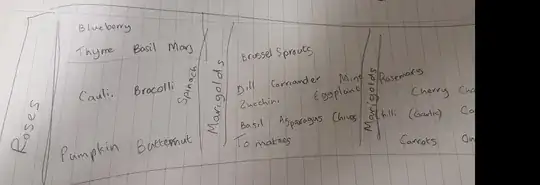 Roses
Blueberry
Thyme Basil Marj
Cauli. Brocolli
Spinach
Pumpkin Butternut
Marigolds
Brussel Sprouts
Dill Corriander Mint
Zucchini Eggplant
Basil Asparagus Chives
Tomatoes
Marigolds
Rosemary
Cherry
Chilli (Garlic)
Carrots